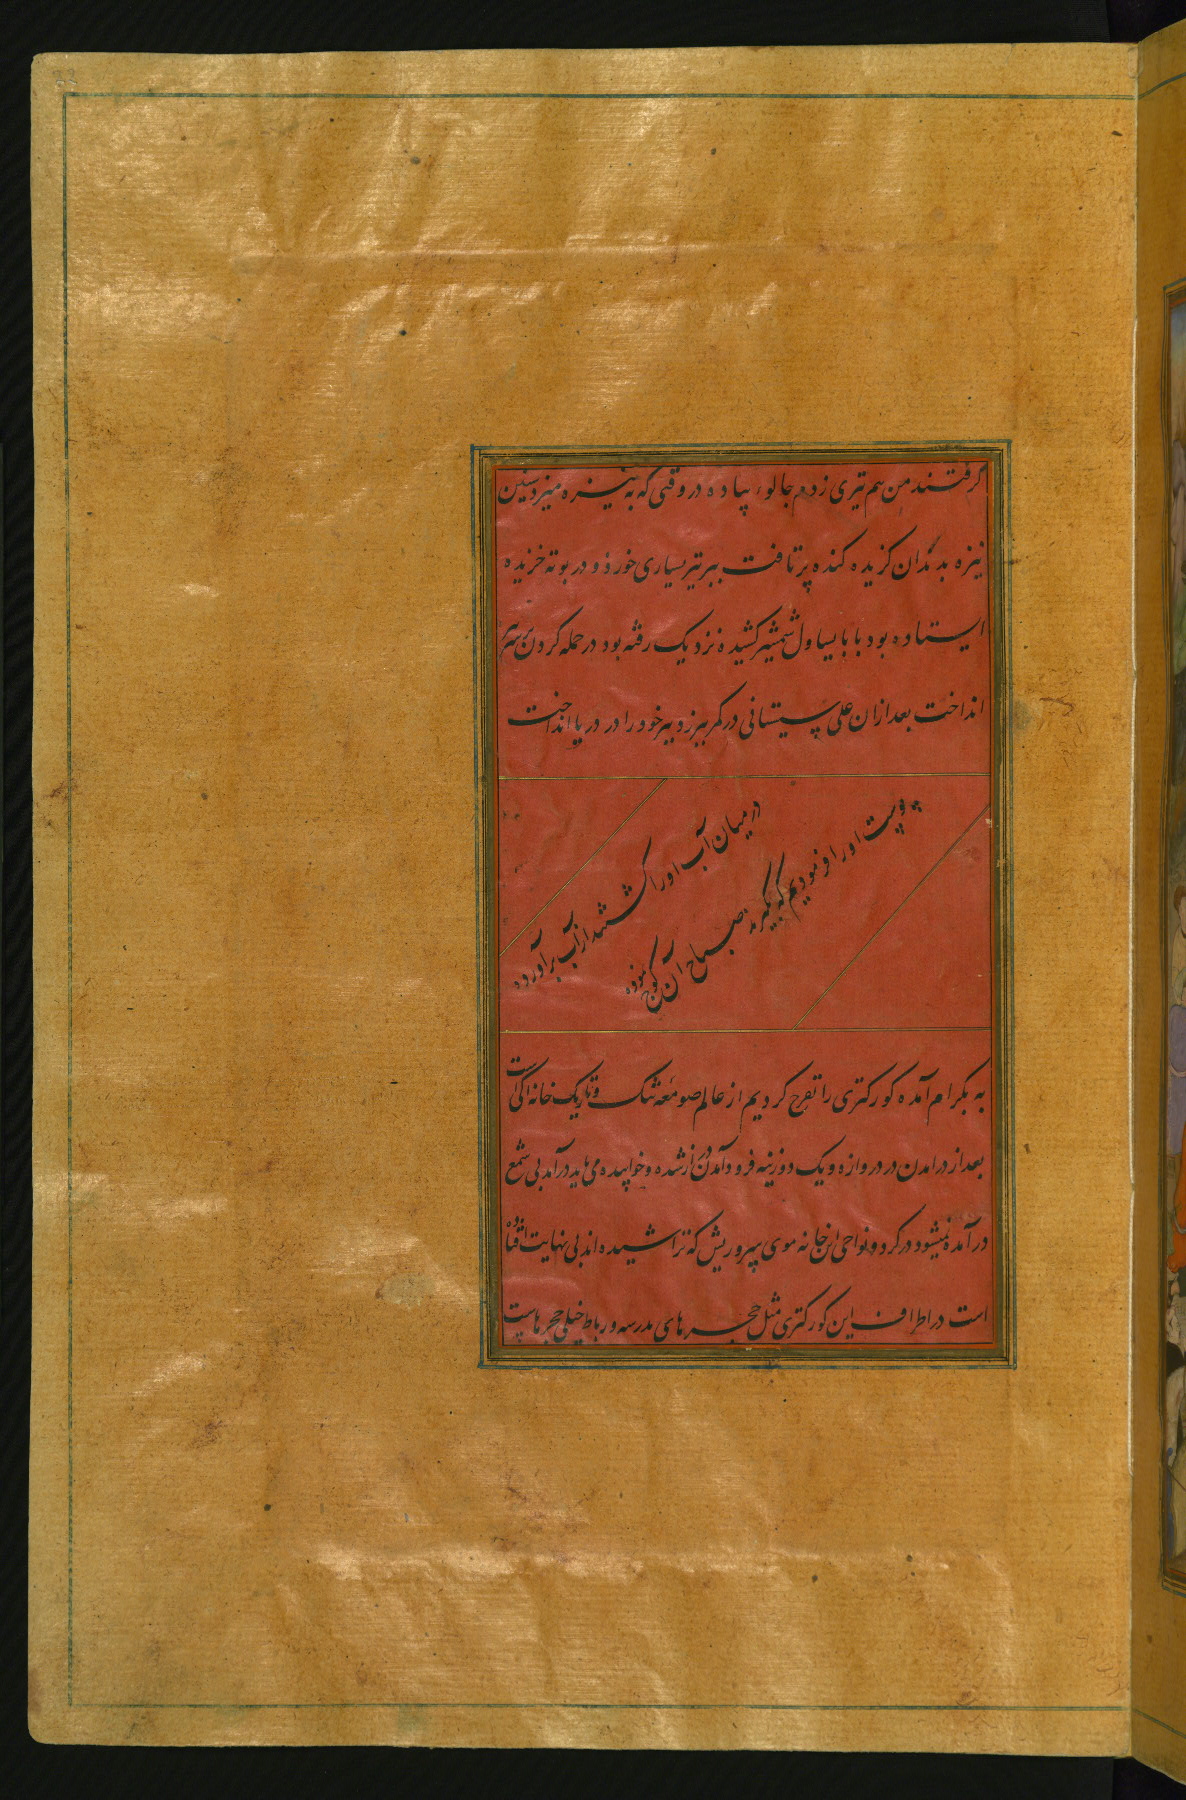 گرفتند من هم تیری زدم جالوء پیاده در وقتی که به نیزه میزد سنین
نیزه بدندان گزیده کنده پرتافت ببر تیر بسیاری خورده و در بوته خزیده
ایستاده بود بابا یساول شمشیر کشیده نزدیک رفته بود در حمله کردن بسر
انداخت بعد ازان علی سیستانی در کمر ببر زد ببر خود را در دریا انداخت
در میان آب او را کشتند از آب برآورده
پوست او را فرمودیم که بگیرند صباح آن کوچ نموده
به بکرام آمده کورکتری را تفرج کردیم از عالم صومعه تنک و تاریک خانه است
بعد از درامدن در دروازه و یک دو زینه فرود آمدن دراز شده و خوابیده می باید درآمد بی شمع
درآمده نمیشود در گرد و نواحی این خانه موی سر و ریش که تراشیده اند بی نهایت افتاده
است در اطراف این کورکتری مثل حجره های مدرسه و رباط خیلی حجره هاست